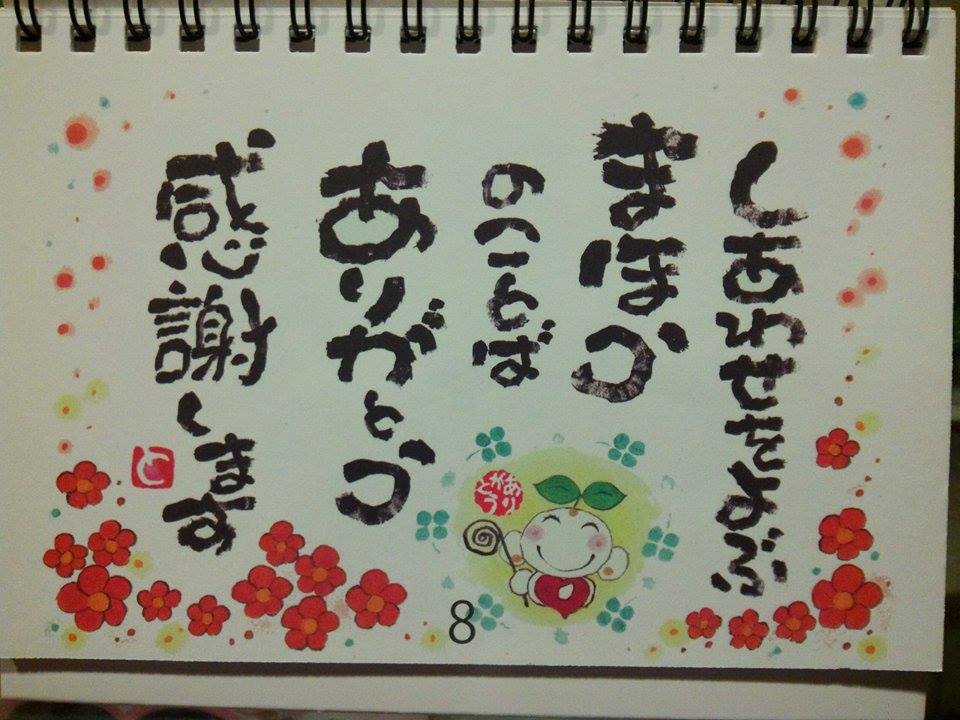 しあわせをよぶ
まほう
のことば
ありがとう
感謝します
ありがとう
8